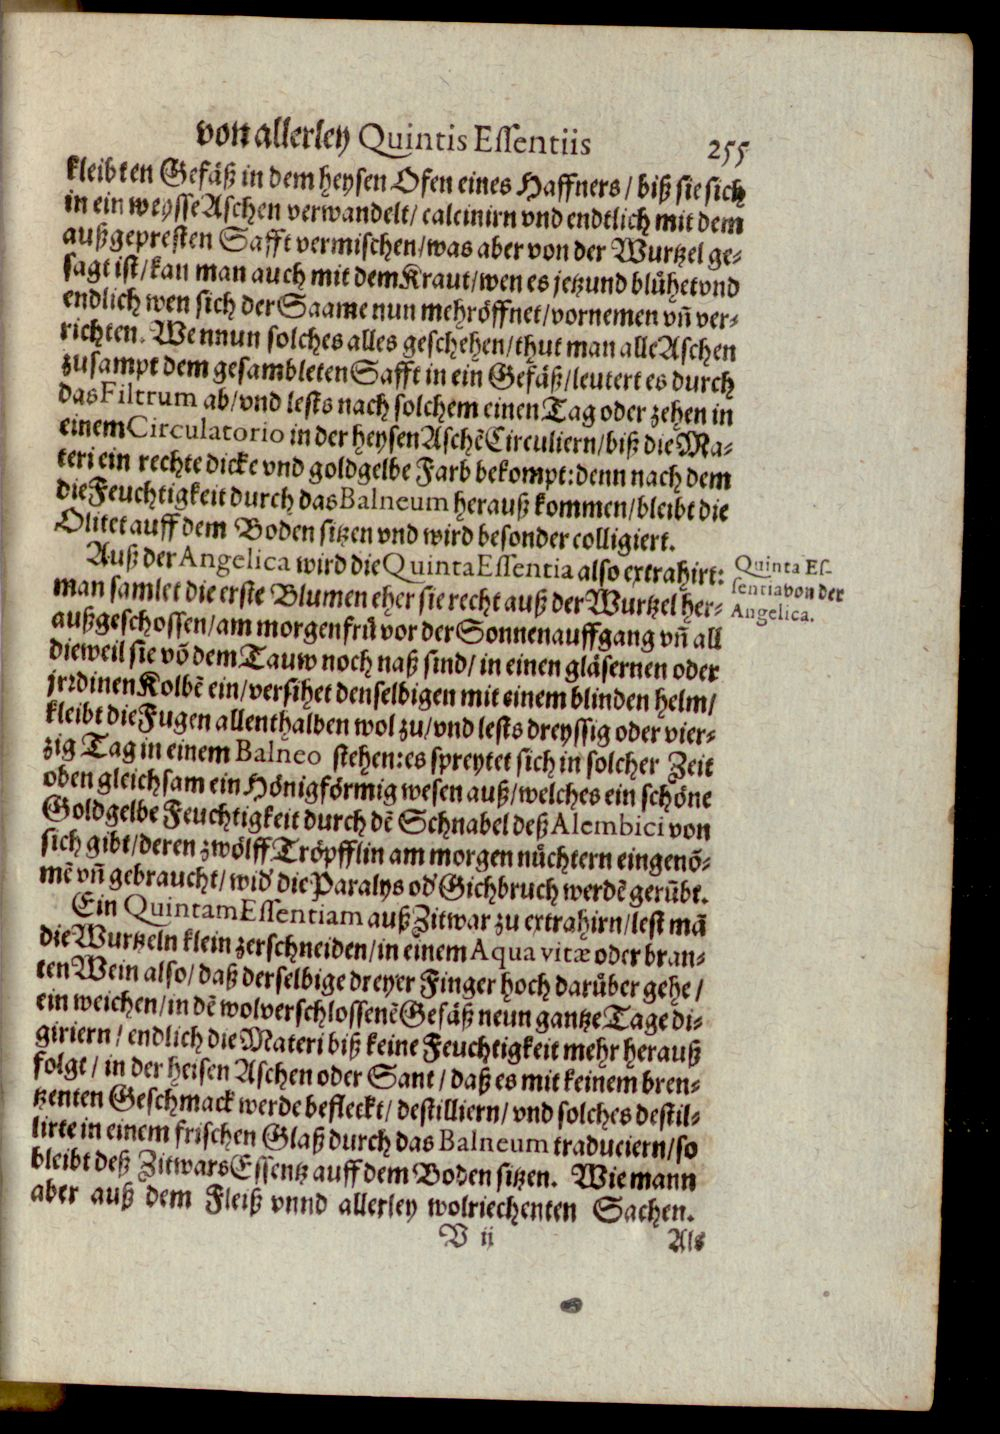 von allerley Quintis Essentiis 255
kleibten Gefäß in dem heysen Ofen eines Haffners / biß sie sich
in ein weysse Aschen verwandelt / calcinirn vnd endtlich mit dem
außgepresten Safft vermischen / was aber von der Wurtzel ge-
sagt ist / kan man auch mit dem Kraut / wen es jetzund blühet vnd
endlich wen sich der Saame nun mehr öffnet / vornemen vñ ver-
richten. Wennun solches alles geschehen / thut man alle Aschen
zusampt dem gesambleten Safft in ein Gefäß / leutert es durch
das Filtrum ab / vnd lests nach solchem einen Tag oder zehen in
einem Circulatorio in der heysen Aschẽ Circuliern / biß die Ma-
teri ein rechte dicke vnd goldgelbe Farb bekompt: denn nach dem
die Feuchtigkeit durch das Balneum herauß kommen / bleibt die
Olitet auff dem Boden sitzen vnd wird besonder colligiert.
Auß der Angelica wird die Quinta Essentia also extrahirt:
Quinta Es-
sentia von der
Angelica.
man samlet die erste Blumen eher sie recht auß der Wurtzel her-
außgeschossen / am morgen frü vor der Sonnenauffgang vñ all
dieweil sie võ dem Tauw noch naß sind / in einen gläsernen oder
jrrdinen Kolbẽ ein / versihet denselbigen mit einem blinden helm /
kleibt die Fugen allenthalben wol zu / vnd lests dreyssig oder vier-
zig Tag in einem Balneo stehen: es spreytet sich in solcher Zeit
oben gleichsam ein Hönigförmig wesen auß / welches ein schöne
Goldgelbe Feuchtigkeit durch dẽ Schnabel deß Alembici von
sich gibt / deren zwölff Tröpfflin am morgen nüchtern eingenõ-
mẽ vñ gebraucht / wid' die Paralys od' Gichbruch werdẽ gerübt.
Ein Quintam Essentiam auß Zitwar zu extrahirn / lest mã
die Wurtzeln klein zerschneiden / in einem Aqua vitæ oder bran-
ten Wein also / daß derselbige dreyer Finger hoch darüber gehe /
ein weichen / in dẽ wolverschlossenẽ Gefäß neun gantze Tage di-
giriern / endlich die Materi biß keine Feuchtigkeit mehr herauß
folgt / in der heisen Aschen oder Sant / daß es mit keinem bren-
tzenten Geschmack werde befleckt / destilliern / vnd solches destil-
lirte in einem frischen Glaß durch das Balneum traduciern / so
bleibt deß Zitwars Essentz auff dem Boden sitzen. Wie mann
aber auß dem Fleiß vnnd allerley wolriechenten Sachen.
V ij Als